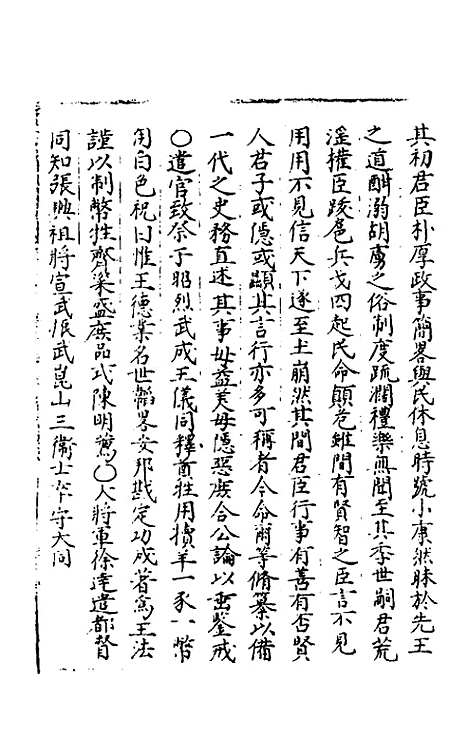 其初君臣朴厚政事簡畧與民休息時號小康然昧於先王
之道酣溺胡虜之俗制度疏濶禮樂無聞至其季世嗣君荒
淫權臣跋扈兵戈四起民命顛危雖間有賢智之臣言不見
用用不見信天下遂至土崩然其間君臣行事有善有否賢
人君子或隱或顯其言行亦多可稱者今命爾等脩纂以備
一代之史務直述其事毋益美毋隱惡庶合公論以垂鑒戒
○遣官致祭于昭烈武成王儀同釋奠牲用犢羊一豕一幣
用白色祝曰惟王德業名世韜畧安邦戡定功成著爲王法
謹以制幣牲齊粢盛庶品式陳明薦○大將軍徐達遣都督
同知張興祖將宣武振武崑山三衛士卒守大同